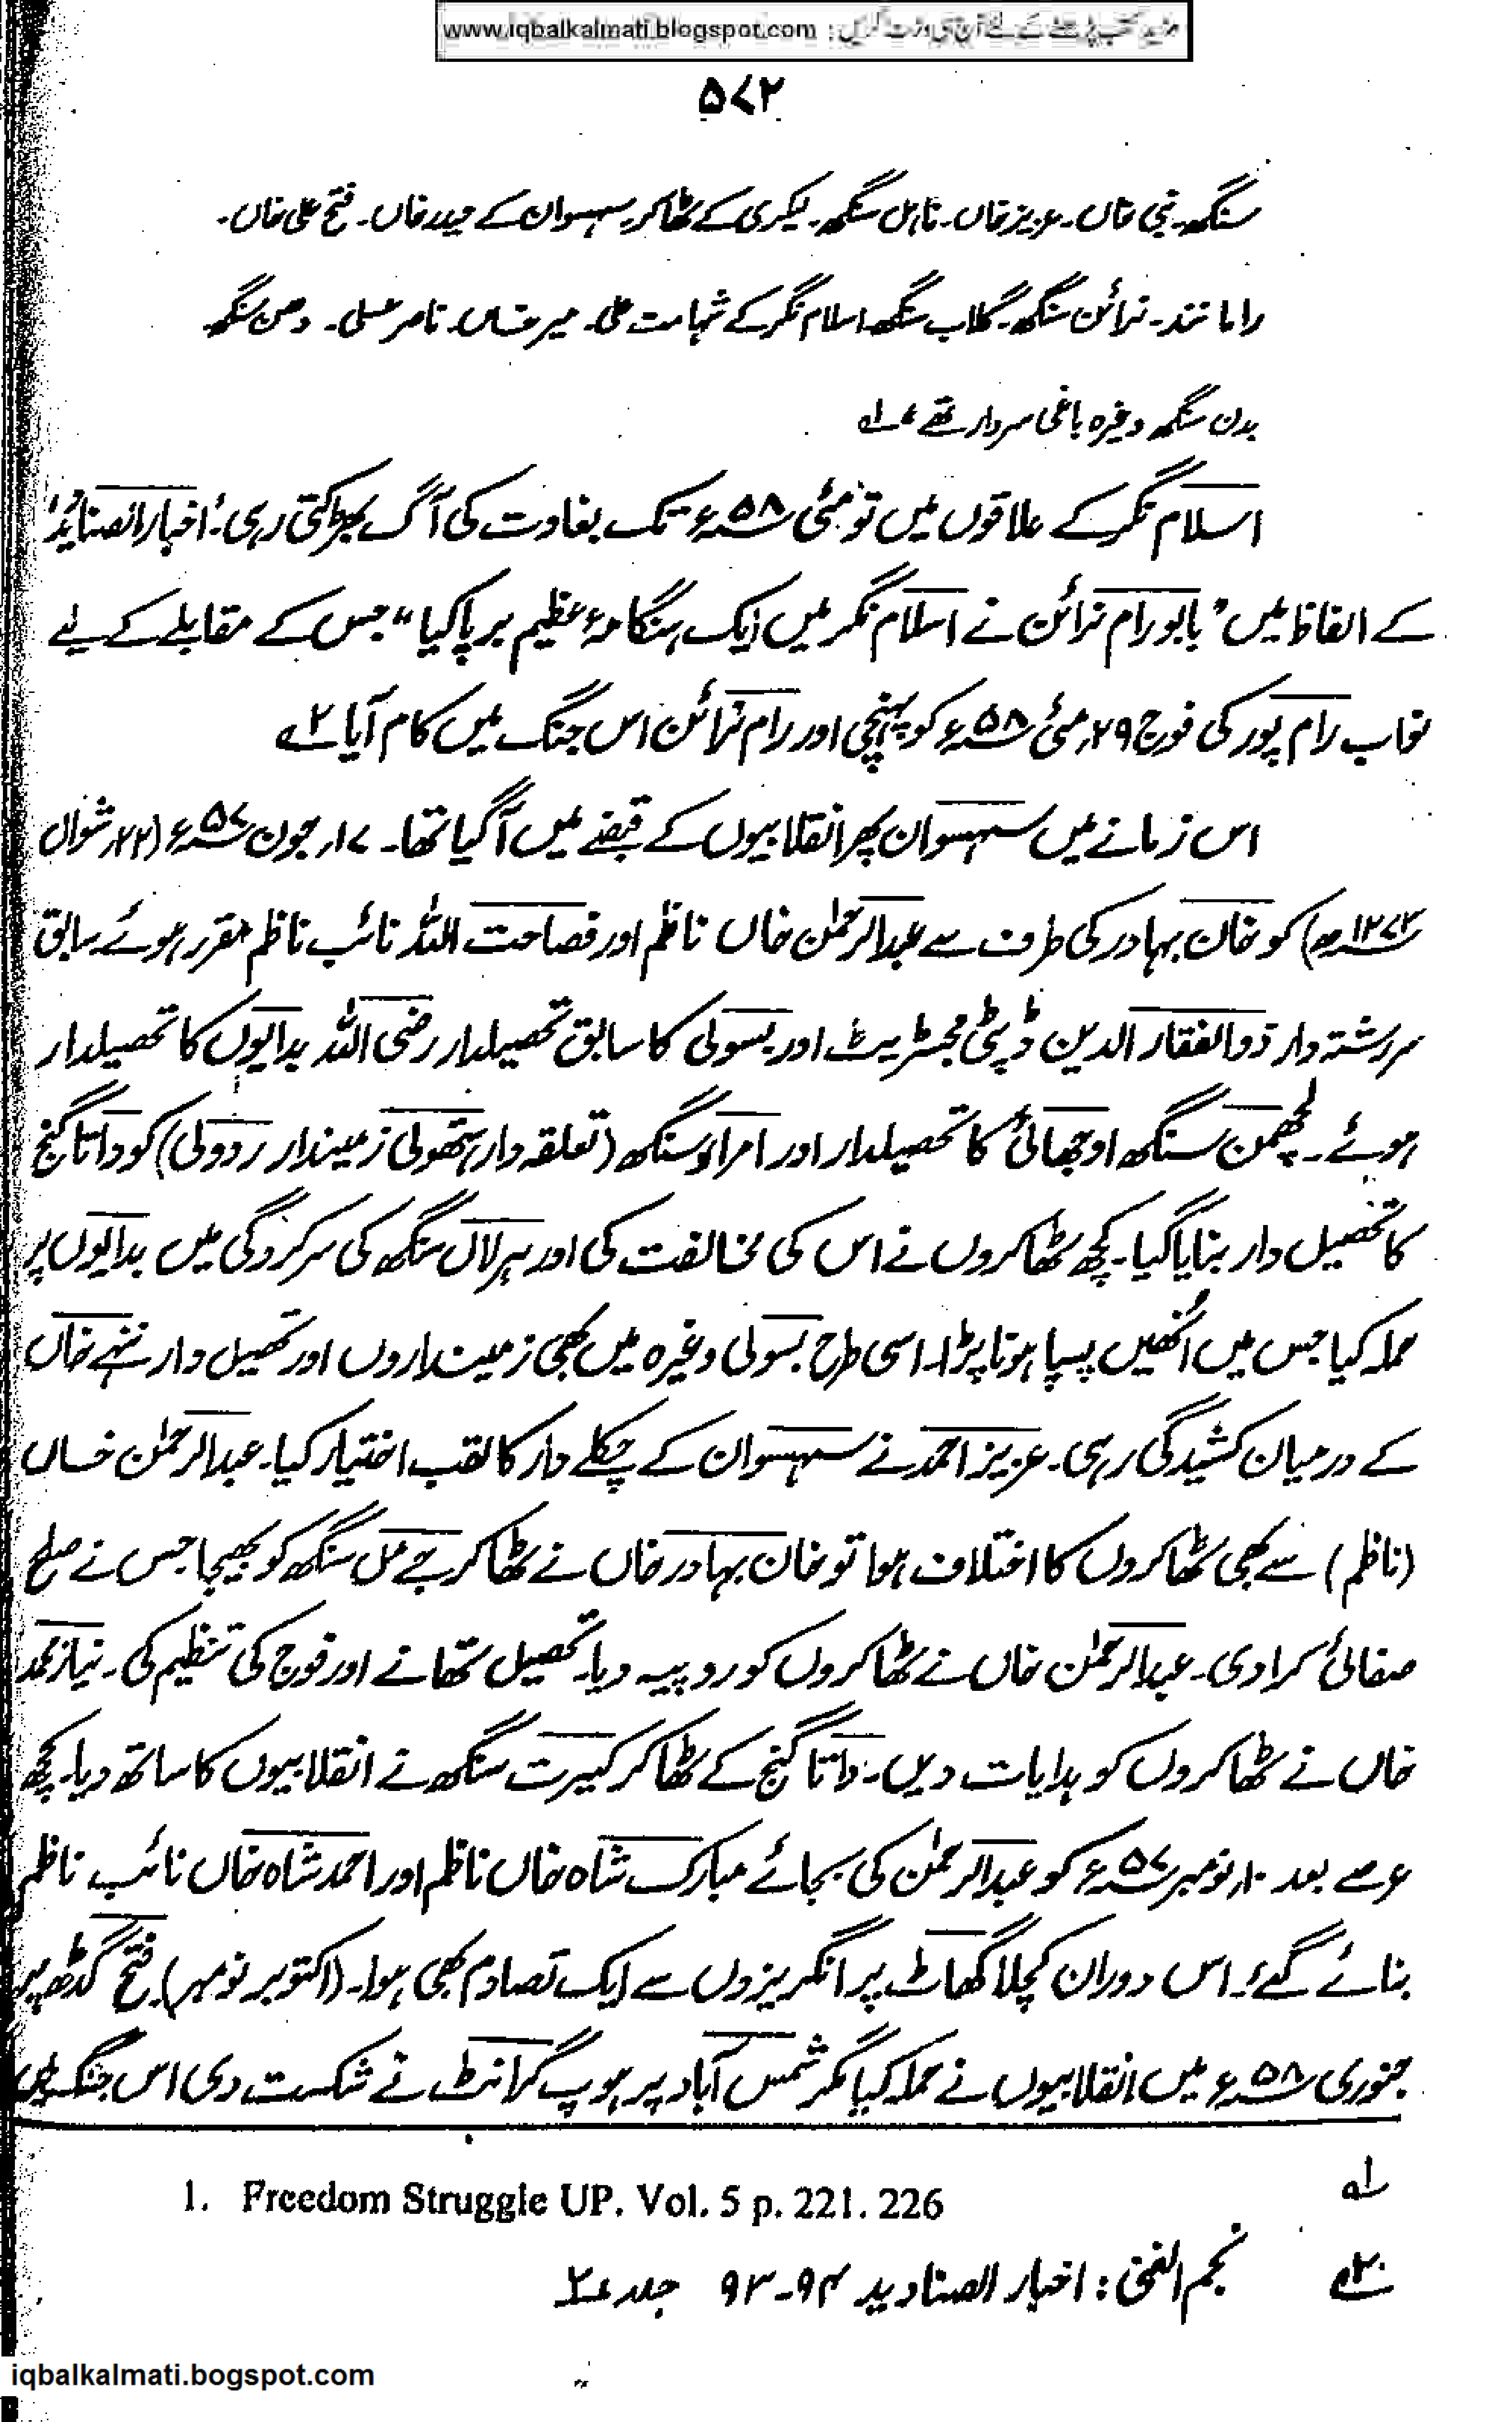 مزید کتب پڑھنے کے لئے آج ہی وزٹ کریں : www.iqbalkalmati.blogspot.com
۵۷۲
سنگھ۔ نبی خاں۔ عزیز خاں۔ تاہل سنگھ۔ لیکری کے ٹھاکر سہسوان کے حیدر خاں۔ فتح علی خاں۔
راما نند۔ نرائن سنگھ۔ گلاب سنگھ اسلام نگر کے شہامت علی۔ میر خاں۔ ناصر علی۔ دھن سنگھ
بدن سنگھ وغیرہ باغی سردار تھے۔ ۱؎
اسلام نگر کے علاقوں میں تو مئی ۵۸ء تک بغاوت کی آگ بھڑکتی رہی۔ 'اخبار الصنادید'
کے الفاظ میں "بابو رام نرائن نے اسلام نگر میں ایک ہنگامۂ عظیم برپا کیا" جس کے مقابلے کے لیے
نواب رام پور کی فوج ۲۹؍ مئی ۵۸ء کو پہنچی اور رام نرائن اس جنگ میں کام آیا ۲؎
اس زمانے میں سہسوان پھر انقلابیوں کے قبضے میں آ گیا تھا۔ ۱۷؍ جون ۵۷ء (۲۳؍ شوال
۱۲۷۳ھ) کو خان بہادر کی طرف سے عبدالرحمٰن خاں ناظم اور فصاحت اللہ نائب ناظم مقرر ہوئے سابق
سررشتہ دار ذوالفقار الدین ڈپٹی مجسٹریٹ اور بسولی کا سابق تحصیلدار رضی اللہ بدایوں کا تحصیلدار
ہوئے۔ لچھمن سنگھ اوجھائی کا تحصیلدار اور امراؤ سنگھ (تعلقہ دار ہتھولی زمیندار ردولی) کو داتا گنج
کا تحصیل دار بنایا گیا۔ کچھ ٹھاکروں نے اس کی مخالفت کی اور ہر لال سنگھ کی سرکردگی میں بدایوں پر
حملہ کیا جس میں اُنھیں پسپا ہونا پڑا۔ اسی طرح بسولی وغیرہ میں بھی زمینداروں اور تحصیل دار ننھے خاں
کے درمیان کشیدگی رہی۔ عزیز احمد نے سہسوان کے چکلے دار کا لقب اختیار کیا۔ عبدالرحمٰن خاں
(ناظم) سے بھی ٹھاکروں کا اختلاف ہوا تو خان بہادر خاں نے ٹھاکر جے مل سنگھ کو بھیجا جس نے صلح
صفائی کرا دی۔ عبدالرحمٰن خاں نے ٹھاکروں کو روپیہ دیا۔ تحصیل تھانے اور فوج کی تنظیم کی۔ نیاز محمد
خاں نے ٹھاکروں کو ہدایات دیں۔ داتا گنج کے ٹھاکر کیرت سنگھ نے انقلابیوں کا ساتھ دیا۔ کچھ
عرصے بعد ۱۰؍ نومبر ۵۷ء کو عبدالرحمٰن کی بجائے مبارک شاہ خاں ناظم اور احمد شاہ خاں نائب ناظم
بنائے گئے۔ اس دوران کچلا گھاٹ پر انگریزوں سے ایک تصادم بھی ہوا۔ (اکتوبر نومبر) فتح گڈھ پر
جنوری ۵۸ء میں انقلابیوں نے حملہ کیا مگر شمس آباد پر ہوپ گرانٹ نے شکست دی اس جنگ میں
۱؎ 1. Freedom Struggle UP. Vol. 5 p. 221. 226
۲؎ نجم الغنی: اخبار الصنادید ۹۴-۹۳ جلد ۲
iqbalkalmati.bogspot.com